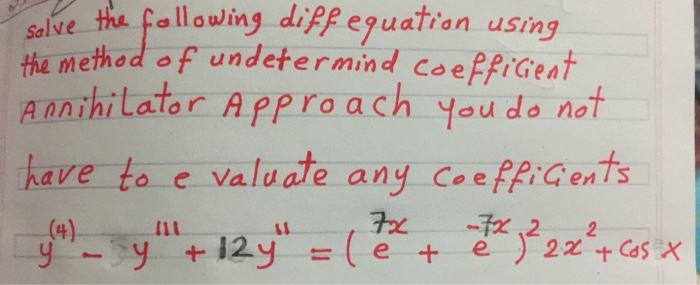 salve the following diff equation using
the method of undetermind coefficient
Annihilator Approach you do not
have to evaluate any coefficients
y⁽⁴⁾ - y''' + 12y'' = (e^{7x} + e^{-7x})² 2x² + cos x